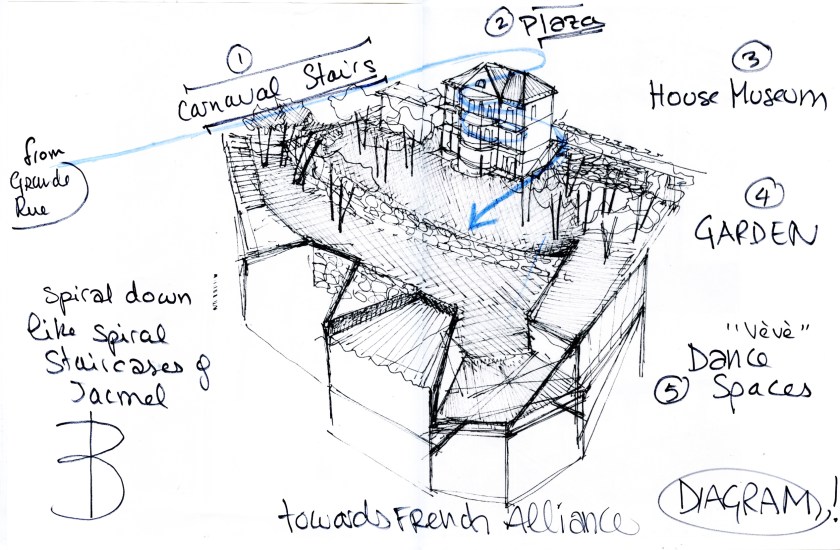 ①
Carnaval Stairs
② Plaza
③
House Museum
from
Grande
Rue
④
GARDEN
spiral down
like spiral
staircases of
Jacmel
"Vèvè"
Dance
⑤ Spaces
towards French Alliance
DIAGRAM!